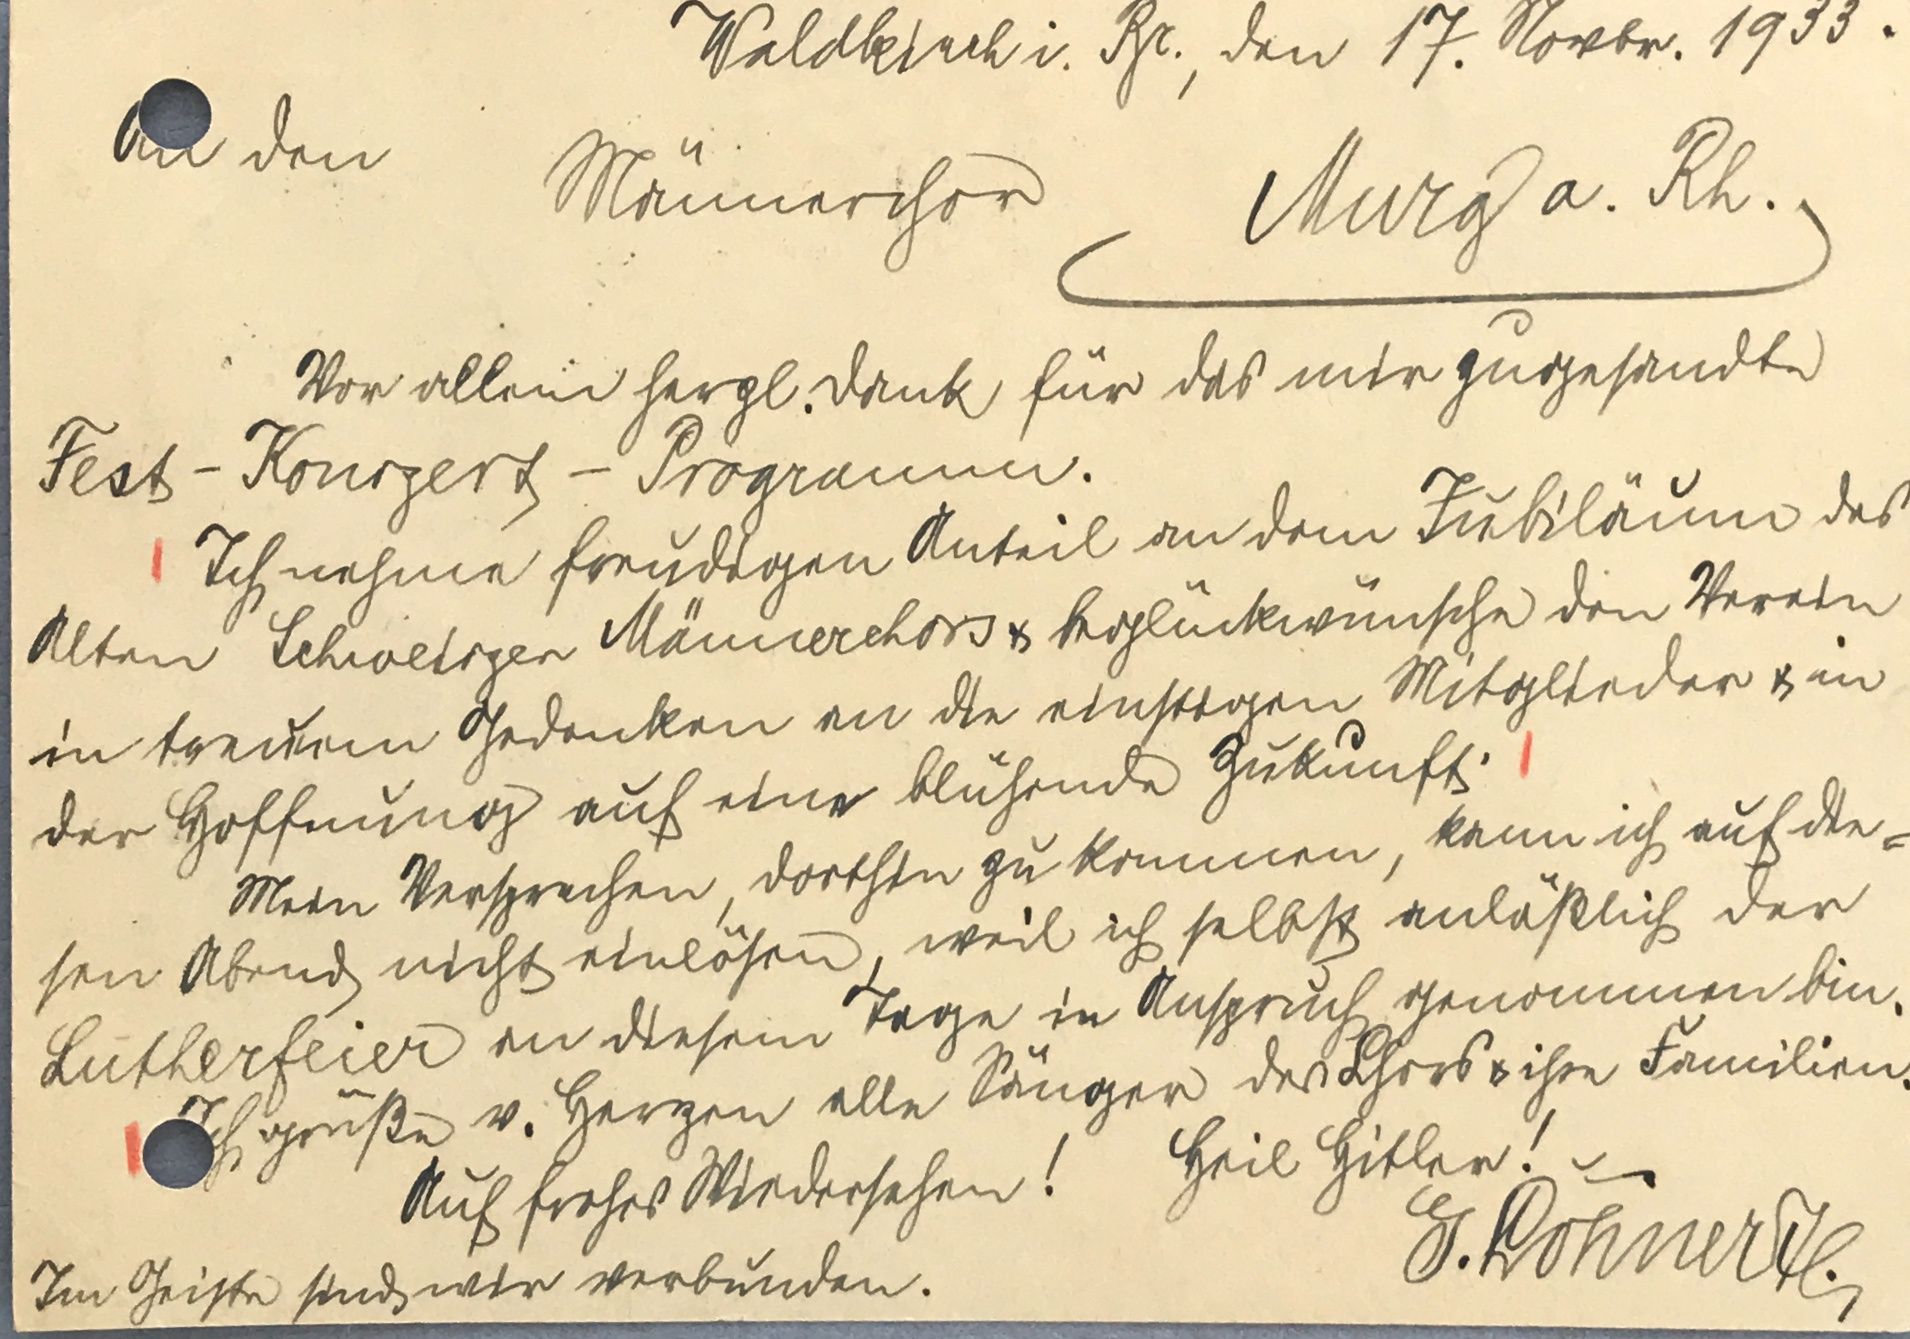 Waldkirch i. Br., den 17. Novbr. 1933.
An den Männerchor Murg a. Rh.
Vor allem herzl. Dank für das mir zugesandte
Fest-Konzert-Programm.
Ich nehme freudigen Anteil an dem Jubiläum des
Alten Schweizer Männerchors & beglückwünsche den Verein
in treuem Gedenken an die einstigen Mitglieder & in
der Hoffnung auf eine blühende Zukunft.
Mein Versprechen, dorthin zu kommen, kann ich auf die=
sen Abend nicht einlösen, weil ich selbst anläßlich der
Lutherfeier an diesem Tage in Anspruch genommen bin.
Ich grüße v. Herzen alle Sänger des Chors & ihre Familien.
Auf frohes Wiedersehen! Heil Hitler!
Im Geiste sind wir verbunden.